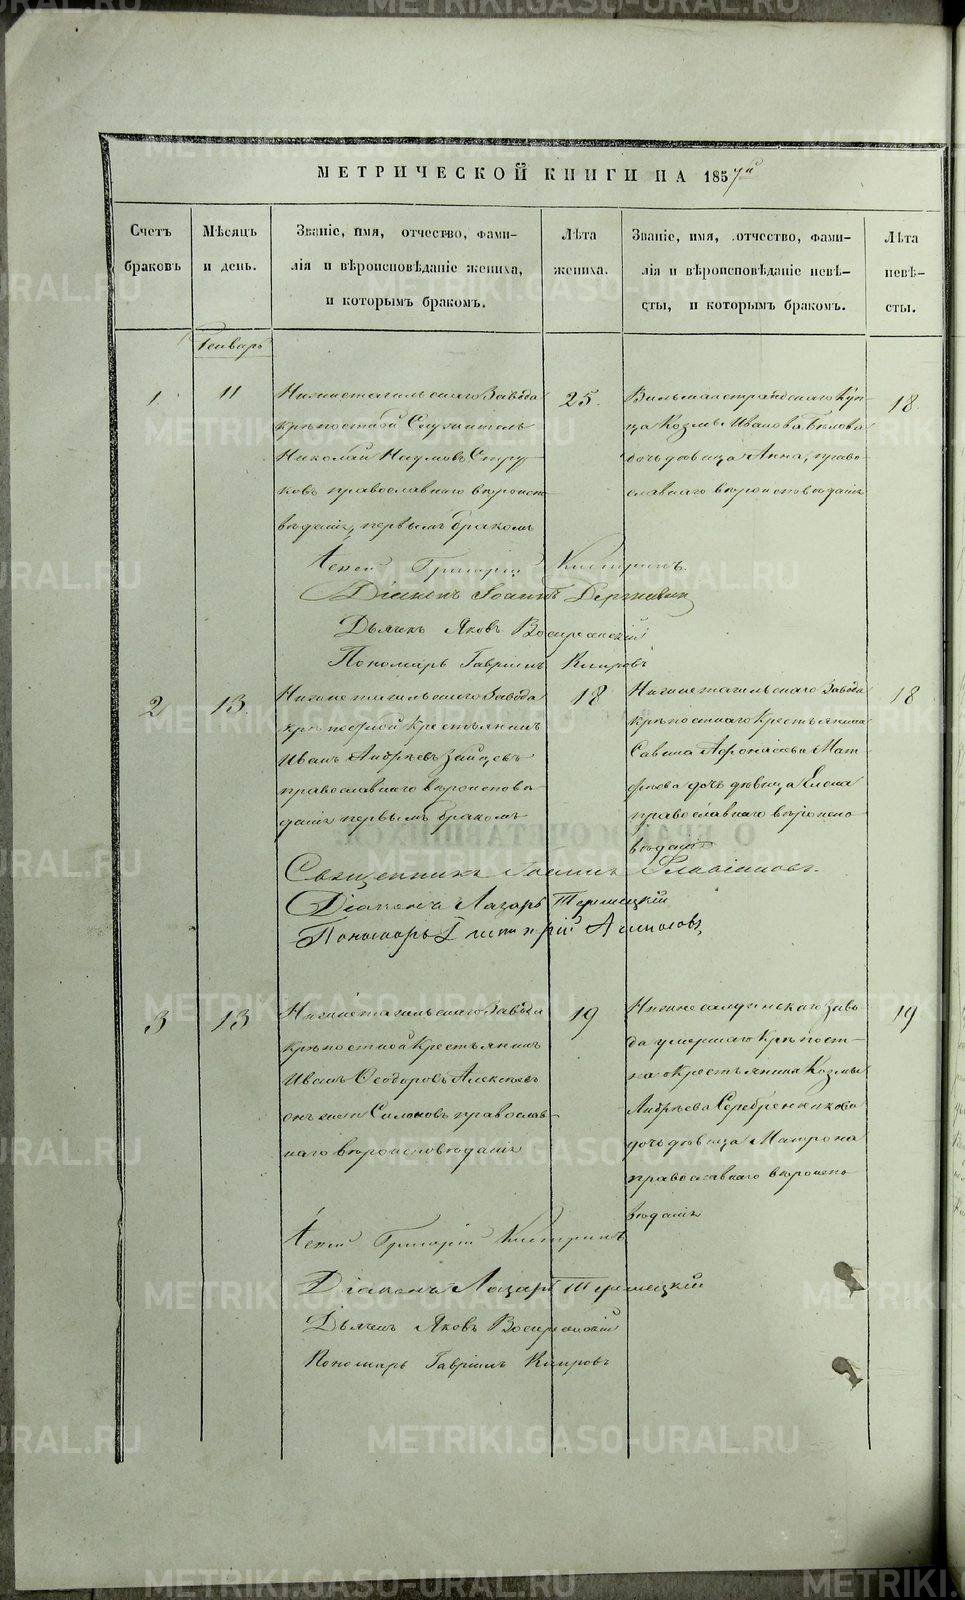 МЕТРИЧЕСКОЙ КНИГИ НА 1857й
Счетъ браковъ
Мѣсяцъ и день.
Званіе, имя, отчество, фами-
лія и вѣроисповѣданіе жениха,
и которымъ бракомъ.
Лѣта жениха.
Званіе, имя, отчество, фами-
лія и вѣроисповѣданіе невѣ-
сты, и которымъ бракомъ.
Лѣта невѣ-
сты.
Генварь
1
11
Нижнетагильскаго Завода
крѣпостной Служитель
Николай Наумовъ Стру
ковъ православнаго вѣроиспо
вѣданія, первымъ бракомъ
25.
Вильманстрандскаго Куп-
ца Козмы Иванова Бѣлова
дочь дѣвица Анна, право-
славнаго вѣроисповѣданія
18.
Іерей Григорій
Діаконъ Іоаннъ
Дьячекъ Яковъ
Пономарь Гавріилъ
2
13.
Нижнетагильскаго Завода
крѣпостной Крестьянинъ
Иванъ Андрѣевъ Зайцевъ
православнаго вѣроисповѣ
данія первымъ бракомъ
18
Нижнетагильскаго Завода
крѣпостнаго Крестьянина
Саввина Афонасьева Мат-
фѣева дочь дѣвица Елена
православнаго вѣроиспо
вѣданія
18
Священникъ Іоаннъ Флавіановъ.
Діаконъ Лазарь
Пономарь
3
13
Нижнетагильскаго Завода
крѣпостной Крестьянинъ
Иванъ Феодоровъ Алексѣевъ
онъ же Солоновъ православ-
наго вѣроисповѣданія
19
Нижнесалдинскаго Заво-
да умершаго Крѣпост-
на Крестьянина Козмы
Андрѣева Серебренникова
дочь дѣвица Матрона
православнаго вѣроиспо
вѣданія
19
Іерей Григорій
Діаконъ Лазарь
Дьячекъ Яковъ
Пономарь Гавріилъ
METRIKI.GASO-URAL.RU